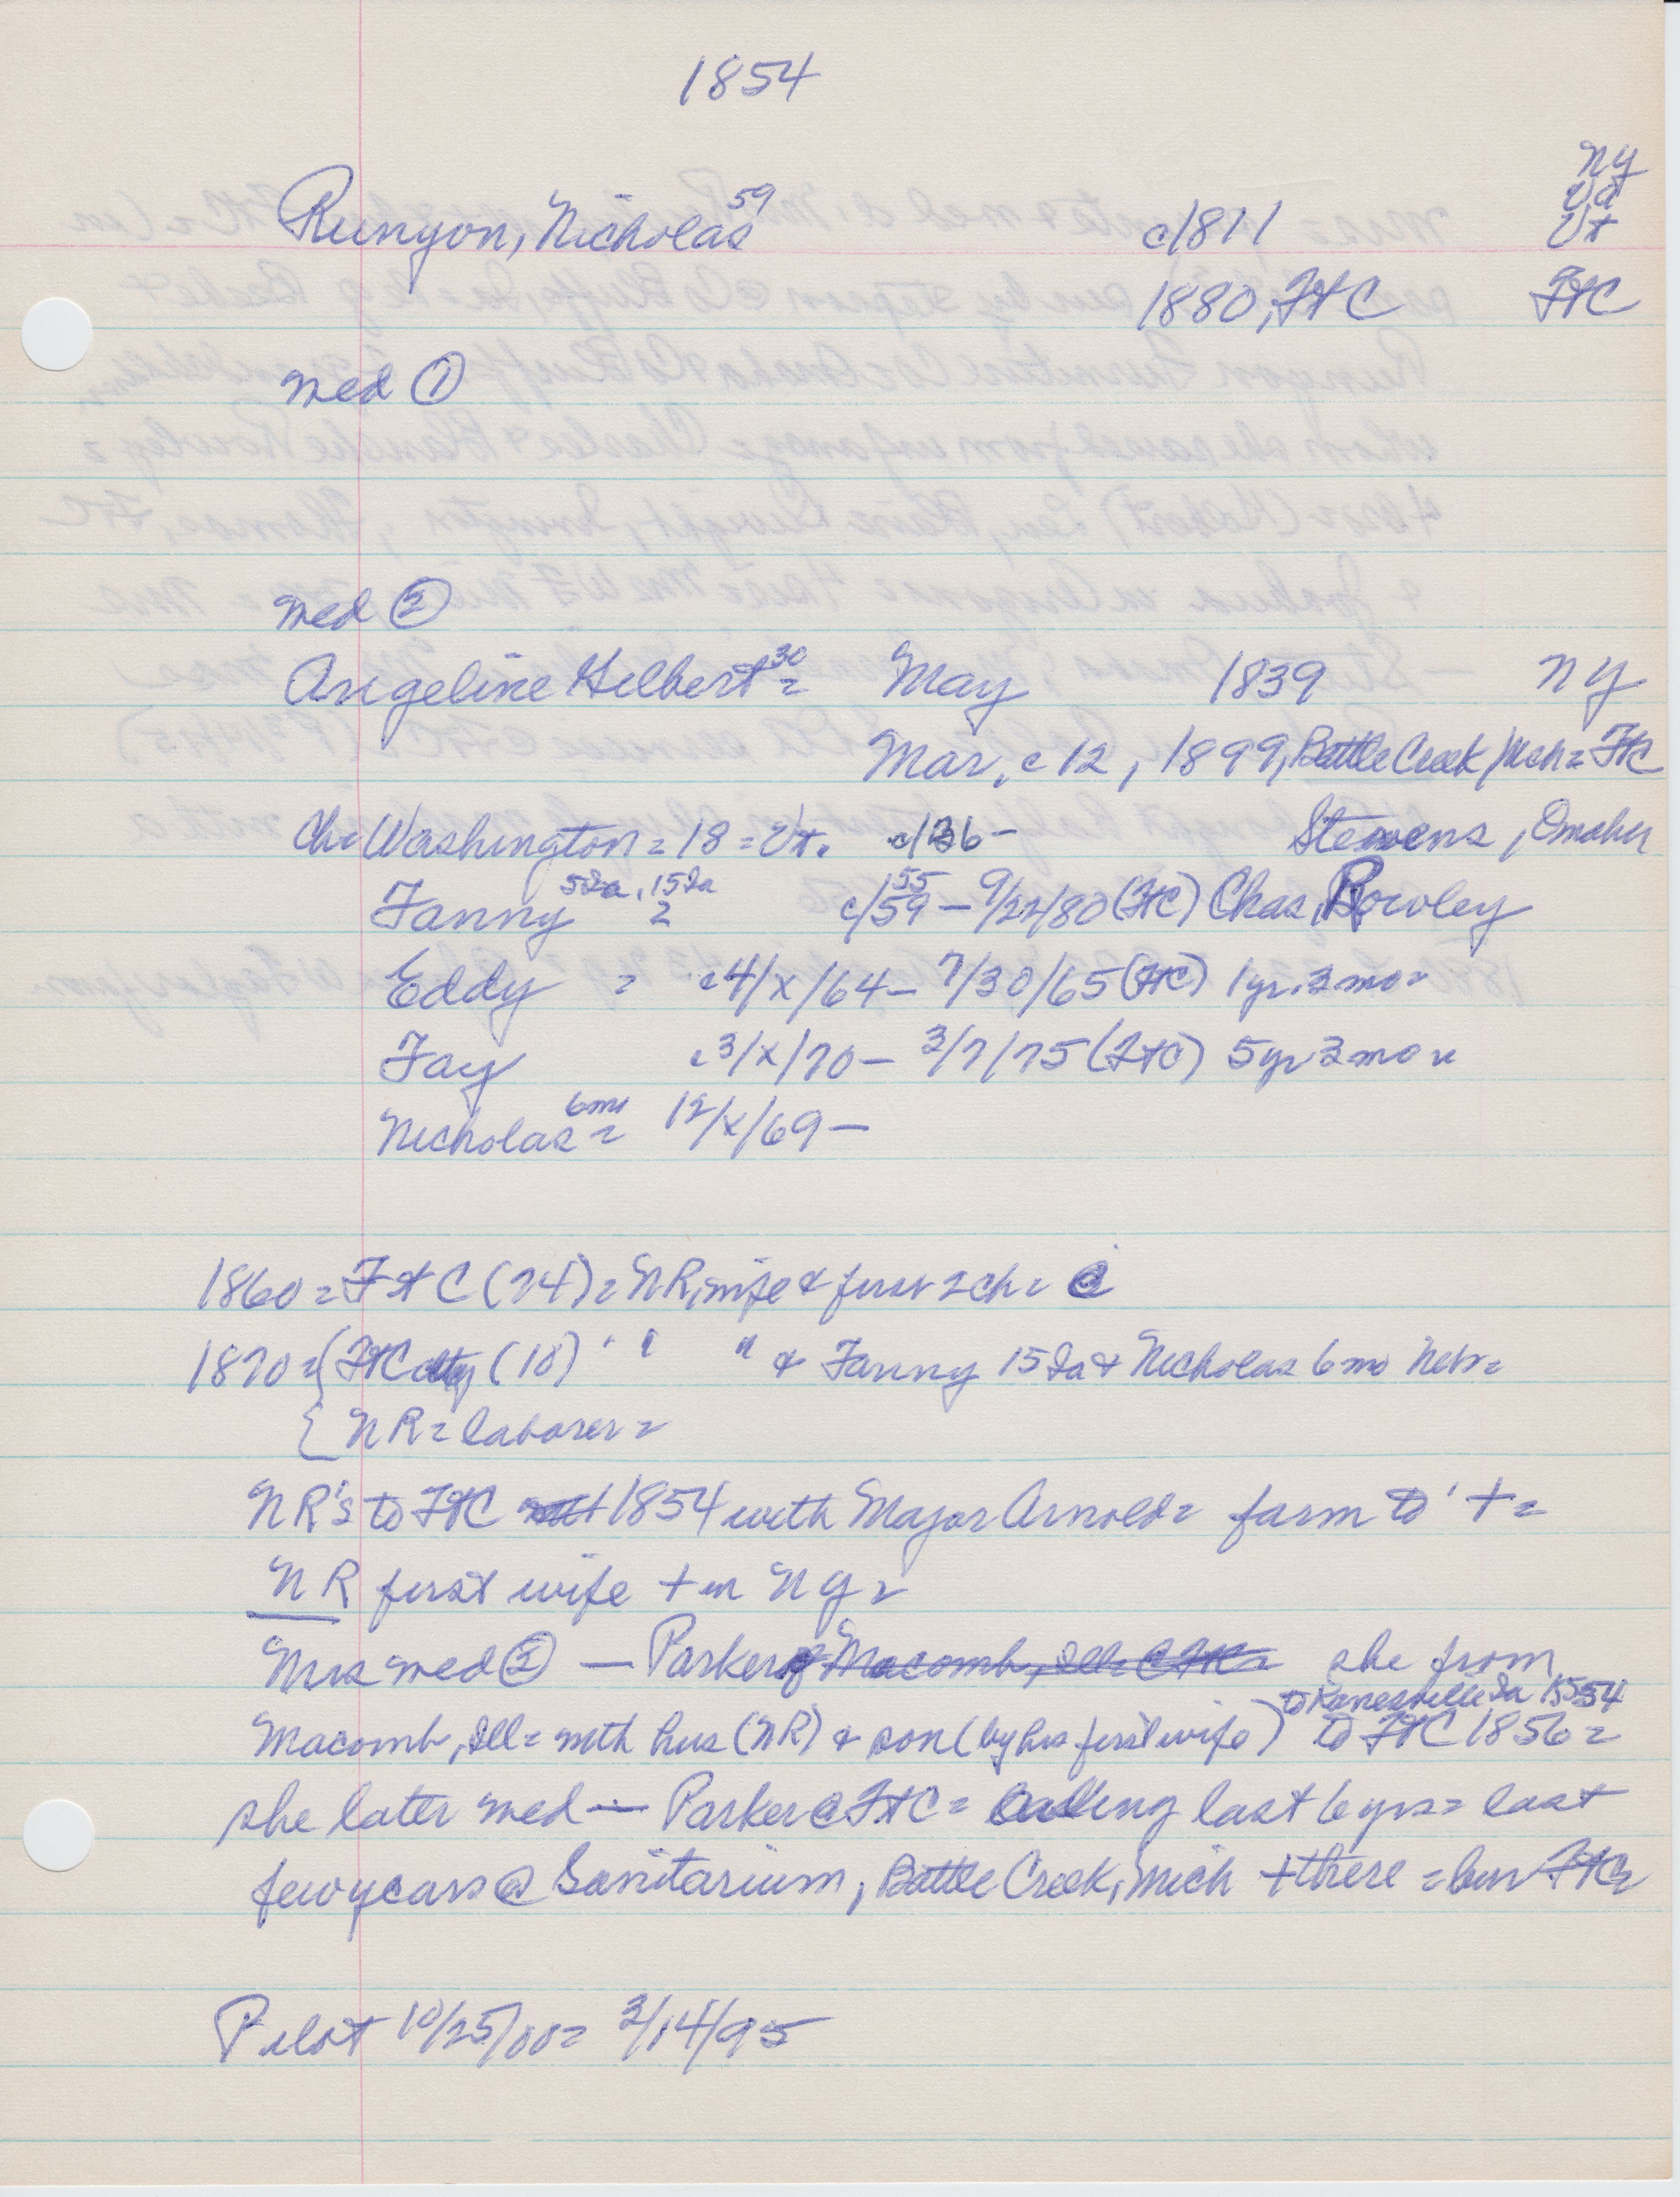 1854
NY
Va
Runyon, Nicholas 59 c/1811 Vt
1880, FtC FtC
med ①
med ②
Angeline Gilbert 30 = May 1839 NY
Mar. c 12, 1899, Battle Creek Mich = FtC
Ch = Washington = 18 = Vt. c/36 - Stevens, Omaha
5 Ia, 15 Ia 55
Fanny 2 c/59 - 9/22/80 (FtC) Chas. Rowley
Eddy = c4/x/64 - 7/30/65 (FtC) 1 yr. 3 mo =
Fay c3/x/70 - 3/7/75 (FtC) 5 yr 3 mo =
Nicholas 6 mo = 12/x/69 -
1860 = FtC (74) = NR, wife & first 2 ch =
1870 = { FtC city (10) " " " & Fanny 15 Ia & Nicholas 6 mo Nebr =
{ NR = laborer =
NR's to FtC 1854 with Major Arnold = farm to ' + =
NR first wife + in NY =
Mrs med ② — Parker of Macomb, Ill = @ FtC = she from
to Kanesville Ia 1854
Macomb, Ill = with hus (NR) & son (by his first wife) to FtC 1856 =
she later med — Parker @ FtC = last 6 yrs = last
few years @ Sanitarium, Battle Creek, Mich + there = bur FtC =
Pilot 10/25/00 = 3/14/95